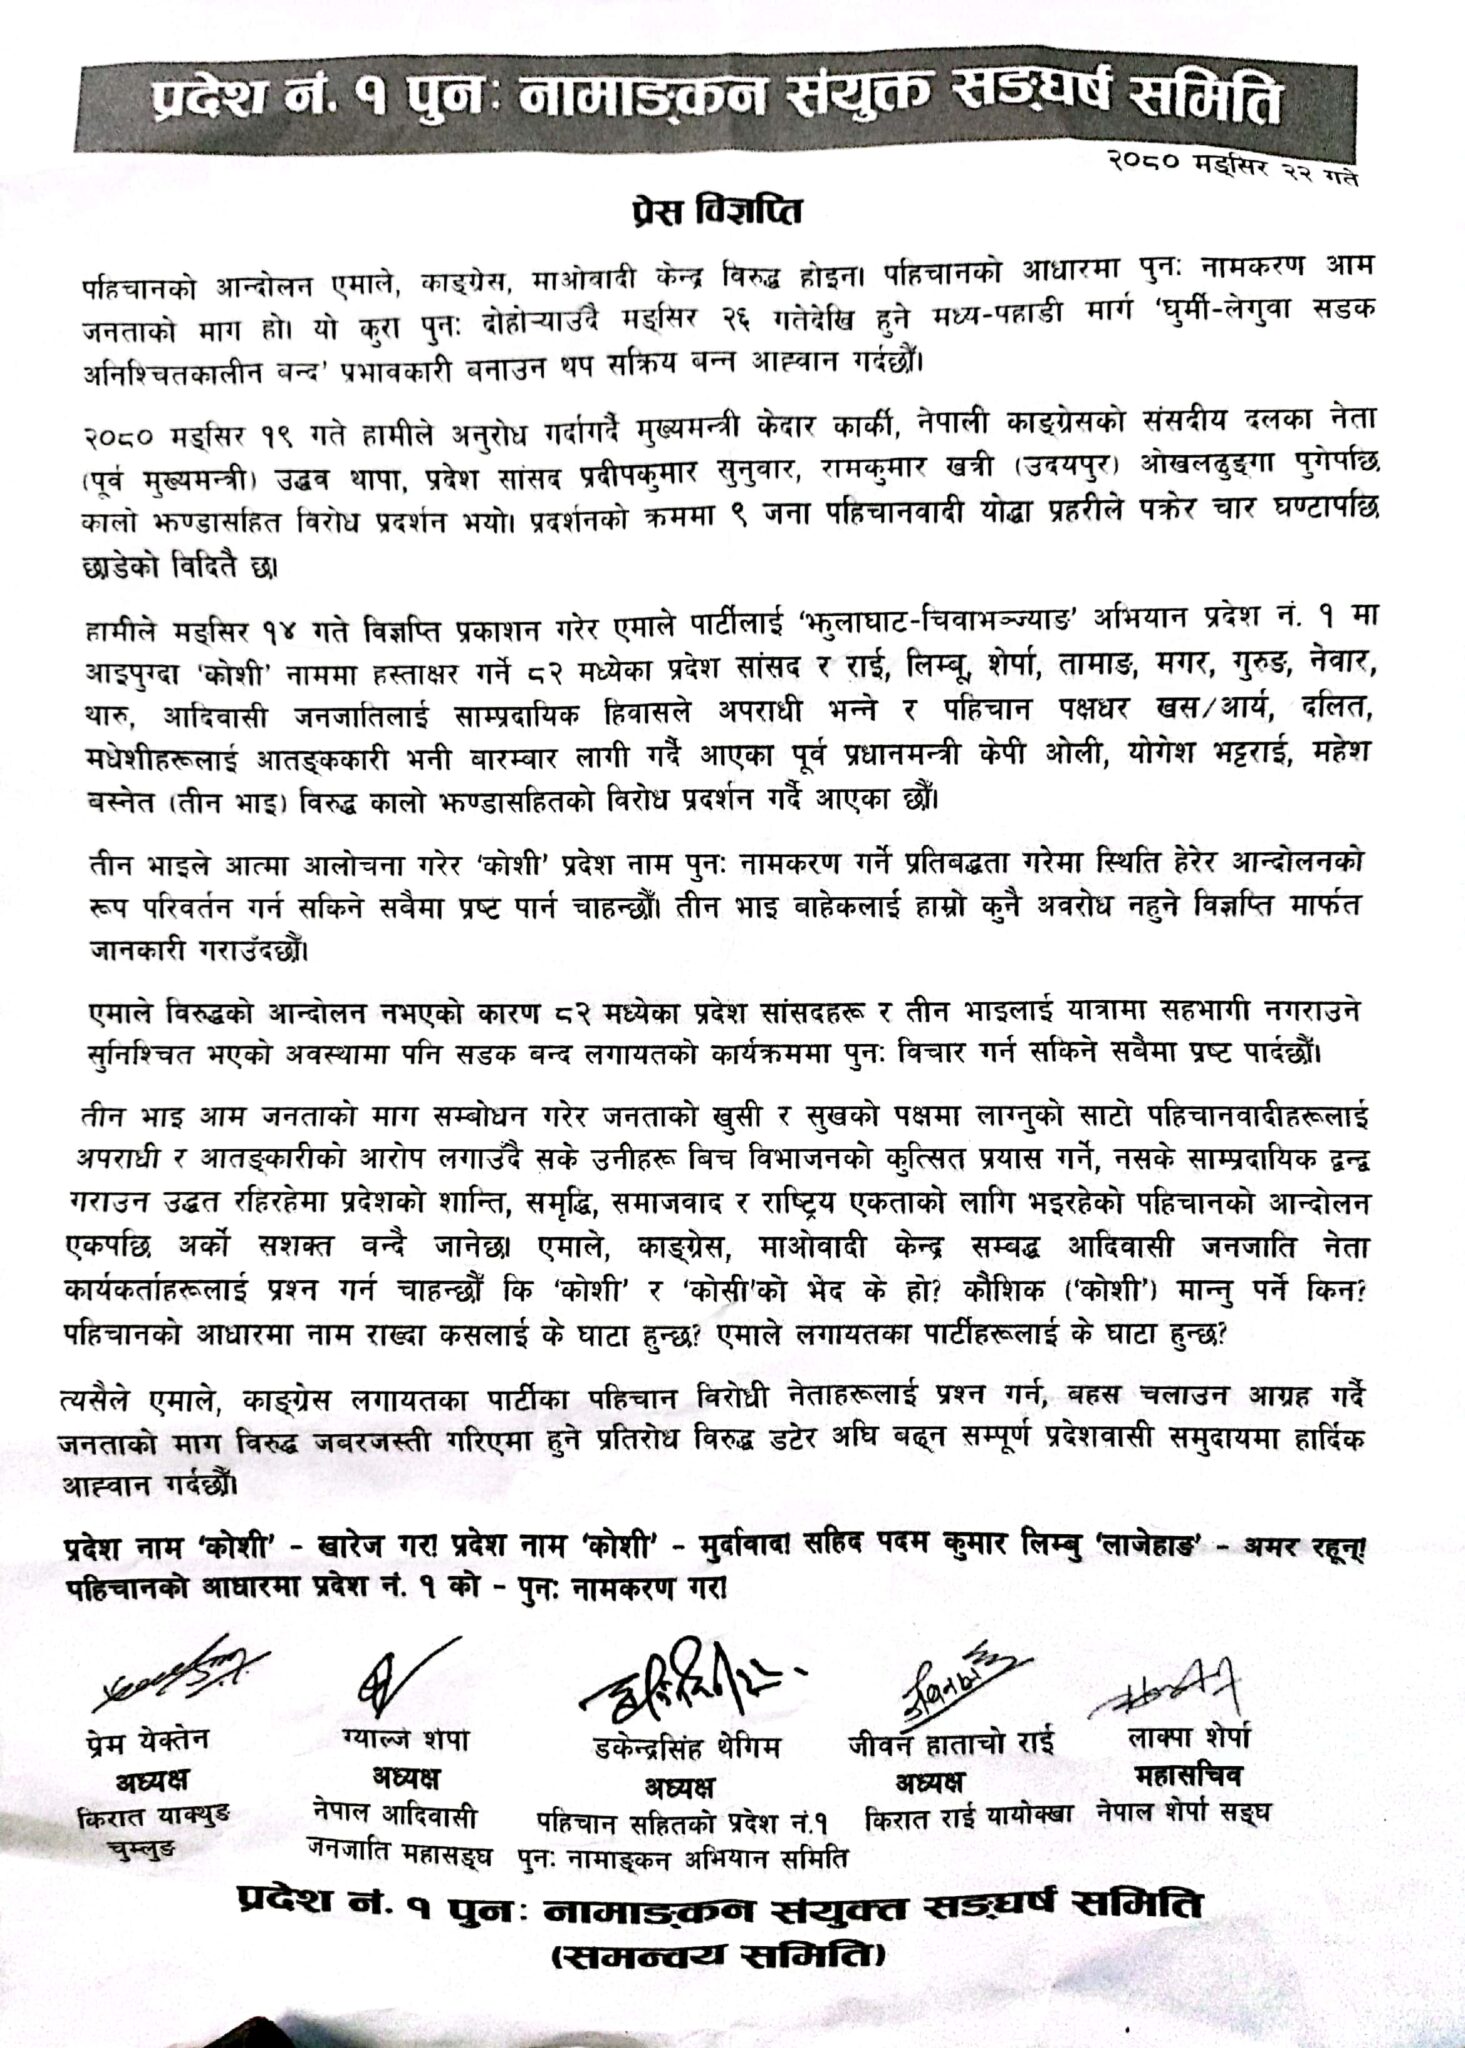 प्रदेश नं. १ पुनः नामाङ्कन संयुक्त सङ्घर्ष समिति
२०८० मङ्सिर २२ गते
प्रेस विज्ञप्ति
पहिचानको आन्दोलन एमाले, काङ्ग्रेस, माओवादी केन्द्र विरुद्ध होइन। पहिचानको आधारमा पुनः नामकरण आम
जनताको माग हो। यो कुरा पुनः दोहोऱ्याउँदै मङ्सिर २६ गतेदेखि हुने मध्य-पहाडी मार्ग 'घुर्मी-लेगुवा सडक
अनिश्चितकालीन बन्द' प्रभावकारी बनाउन थप सक्रिय बन्न आह्वान गर्दछौं।
२०८० मङ्सिर १९ गते हामीले अनुरोध गर्दागर्दै मुख्यमन्त्री केदार कार्की, नेपाली काङ्ग्रेसको संसदीय दलका नेता
(पूर्व मुख्यमन्त्री) उद्धव थापा, प्रदेश सांसद प्रदीपकुमार सुनुवार, रामकुमार खत्री (उदयपुर) ओखलढुङ्गा पुगेपछि
कालो झण्डासहित विरोध प्रदर्शन भयो। प्रदर्शनको क्रममा ९ जना पहिचानवादी योद्धा प्रहरीले पक्रेर चार घण्टापछि
छाडेको विदितै छ।
हामीले मङ्सिर १४ गते विज्ञप्ति प्रकाशन गरेर एमाले पार्टीलाई 'झुलाघाट-चिवाभञ्ज्याङ' अभियान प्रदेश नं. १ मा
आइपुग्दा 'कोशी' नाममा हस्ताक्षर गर्ने ८२ मध्येका प्रदेश सांसद र राई, लिम्बू, शेर्पा, तामाङ, मगर, गुरुङ, नेवार,
थारु, आदिवासी जनजातिलाई साम्प्रदायिक हिवासले अपराधी भन्ने र पहिचान पक्षधर खस/आर्य, दलित,
मधेशीहरूलाई आतङ्ककारी भनी बारम्बार लागी गर्दै आएका पूर्व प्रधानमन्त्री केपी ओली, योगेश भट्टराई, महेश
बस्नेत (तीन भाइ) विरुद्ध कालो झण्डासहितको विरोध प्रदर्शन गर्दै आएका छौं।
तीन भाइले आत्मा आलोचना गरेर 'कोशी' प्रदेश नाम पुनः नामकरण गर्ने प्रतिबद्धता गरेमा स्थिति हेरेर आन्दोलनको
रूप परिवर्तन गर्न सकिने सवैमा प्रष्ट पार्न चाहन्छौं। तीन भाइ बाहेकलाई हाम्रो कुनै अवरोध नहुने विज्ञप्ति मार्फत
जानकारी गराउँदछौं।
एमाले विरुद्धको आन्दोलन नभएको कारण ८२ मध्येका प्रदेश सांसदहरू र तीन भाइलाई यात्रामा सहभागी नगराउने
सुनिश्चित भएको अवस्थामा पनि सडक बन्द लगायतको कार्यक्रममा पुनः विचार गर्न सकिने सबैमा प्रष्ट पार्दछौं।
तीन भाइ आम जनताको माग सम्बोधन गरेर जनताको खुसी र सुखको पक्षमा लाग्नुको साटो पहिचानवादीहरूलाई
अपराधी र आतङ्कारीको आरोप लगाउँदै सके उनीहरू बिच विभाजनको कुत्सित प्रयास गर्ने, नसके साम्प्रदायिक द्वन्द्व
गराउन उद्धत रहिरहेमा प्रदेशको शान्ति, समृद्धि, समाजवाद र राष्ट्रिय एकताको लागि भइरहेको पहिचानको आन्दोलन
एकपछि अर्को सशक्त वन्दै जानेछ। एमाले, काङ्ग्रेस, माओवादी केन्द्र सम्वद्ध आदिवासी जनजाति नेता
कार्यकर्ताहरूलाई प्रश्न गर्न चाहन्छौं कि 'कोशी' र 'कोसी'को भेद के हो? कौशिक ('कोशी') मान्नु पर्ने किन?
पहिचानको आधारमा नाम राख्दा कसलाई के घाटा हुन्छ? एमाले लगायतका पार्टीहरूलाई के घाटा हुन्छ?
त्यसैले एमाले, काङ्ग्रेस लगायतका पार्टीका पहिचान विरोधी नेताहरूलाई प्रश्न गर्न, बहस चलाउन आग्रह गर्दै
जनताको माग विरुद्ध जबरजस्ती गरिएमा हुने प्रतिरोध विरुद्ध डटेर अघि बढ्न सम्पूर्ण प्रदेशवासी समुदायमा हार्दिक
आह्वान गर्दछौं।
प्रदेश नाम 'कोशी' - खारेज गर! प्रदेश नाम 'कोशी' - मुर्दावाद! सहिद पदम कुमार लिम्बु 'लाजेहाङ' - अमर रहून्!
पहिचानको आधारमा प्रदेश नं. १ को - पुनः नामकरण गर!
प्रेम येक्तेन ग्याल्जे शेर्पा डकेन्द्रसिंह थेगिम जीवन हाताचो राई लाक्पा शेर्पा
अध्यक्ष अध्यक्ष अध्यक्ष अध्यक्ष महासचिव
किरात याक्थुङ नेपाल आदिवासी पहिचान सहितको प्रदेश नं.१ किरात राई यायोक्खा नेपाल शेर्पा सङ्घ
चुम्लुङ जनजाति महासङ्घ पुनः नामाङ्कन अभियान समिति
प्रदेश नं. १ पुनः नामाङ्कन संयुक्त सङ्घर्ष समिति
(समन्वय समिति)